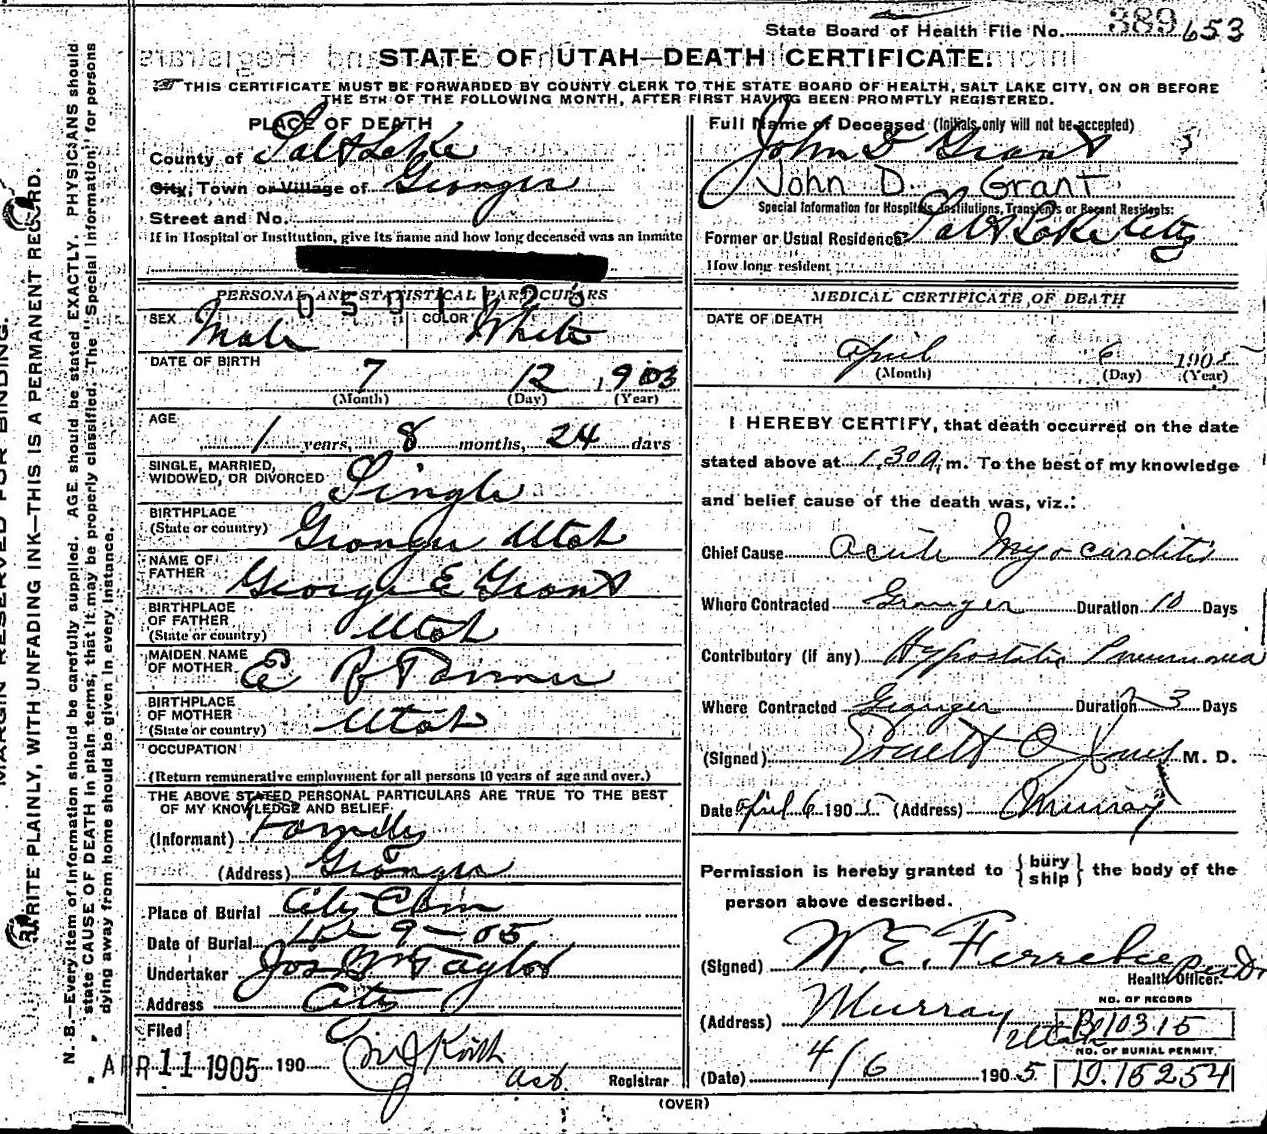 State Board of Health File No. 389 653
STATE OF UTAH—DEATH CERTIFICATE.
THIS CERTIFICATE MUST BE FORWARDED BY COUNTY CLERK TO THE STATE BOARD OF HEALTH, SALT LAKE CITY, ON OR BEFORE
THE 5TH OF THE FOLLOWING MONTH, AFTER FIRST HAVING BEEN PROMPTLY REGISTERED.
MARGIN RESERVED FOR BINDING.
WRITE PLAINLY, WITH UNFADING INK—THIS IS A PERMANENT RECORD.
N. B.—Every item of information should be carefully supplied. AGE should be stated EXACTLY. PHYSICIANS should
state CAUSE OF DEATH in plain terms, that it may be properly classified. The "Special Information" for persons
dying away from home should be given in every instance.
PLACE OF DEATH
County of Salt Lake
City, Town or Village of Granger
Street and No.
If in Hospital or Institution, give its name and how long deceased was an inmate
PERSONAL AND STATISTICAL PARTICULARS
0501126
SEX Male COLOR White
DATE OF BIRTH 7 12 1903
(Month) (Day) (Year)
AGE
1 years, 8 months, 24 days
SINGLE, MARRIED,
WIDOWED, OR DIVORCED Single
BIRTHPLACE
(State or country) Granger Utah
NAME OF
FATHER George E Grant
BIRTHPLACE
OF FATHER
(State or country) Utah
MAIDEN NAME
OF MOTHER E R
BIRTHPLACE
OF MOTHER
(State or country) Utah
OCCUPATION
(Return remunerative employment for all persons 10 years of age and over.)
THE ABOVE STATED PERSONAL PARTICULARS ARE TRUE TO THE BEST
OF MY KNOWLEDGE AND BELIEF
(Informant) Family
(Address) Granger
Place of Burial City Cem
Date of Burial 9-05
Undertaker Jos Wm Taylor
Address City
Filed
APR 11 1905 190 Registrar
Full Name of Deceased (Initials only will not be accepted)
John D Grant 3
John D. Grant
Special Information for Hospitals, Institutions, Transients or Recent Residents:
Former or Usual Residence Salt Lake City
How long resident
MEDICAL CERTIFICATE OF DEATH
DATE OF DEATH
April 6 1905
(Month) (Day) (Year)
I HEREBY CERTIFY, that death occurred on the date
stated above at 1.30 a. m. To the best of my knowledge
and belief cause of the death was, viz.:
Chief Cause acute Myocarditis
Where Contracted Granger Duration 10 Days
Contributory (if any) Hypostatic Pneumonia
Where Contracted Granger Duration 2-3 Days
(Signed) Everett O Jones M. D.
Date April 6 1905 (Address) Murray
Permission is hereby granted to { bury ship } the body of the
person above described.
(Signed) W. E. Ferrebee per Dr
Health Officer.
(Address) Murray Utah
NO. OF RECORD
B 10315
NO. OF BURIAL PERMIT.
D. 15254
(Date) 4/6 1905
(OVER)